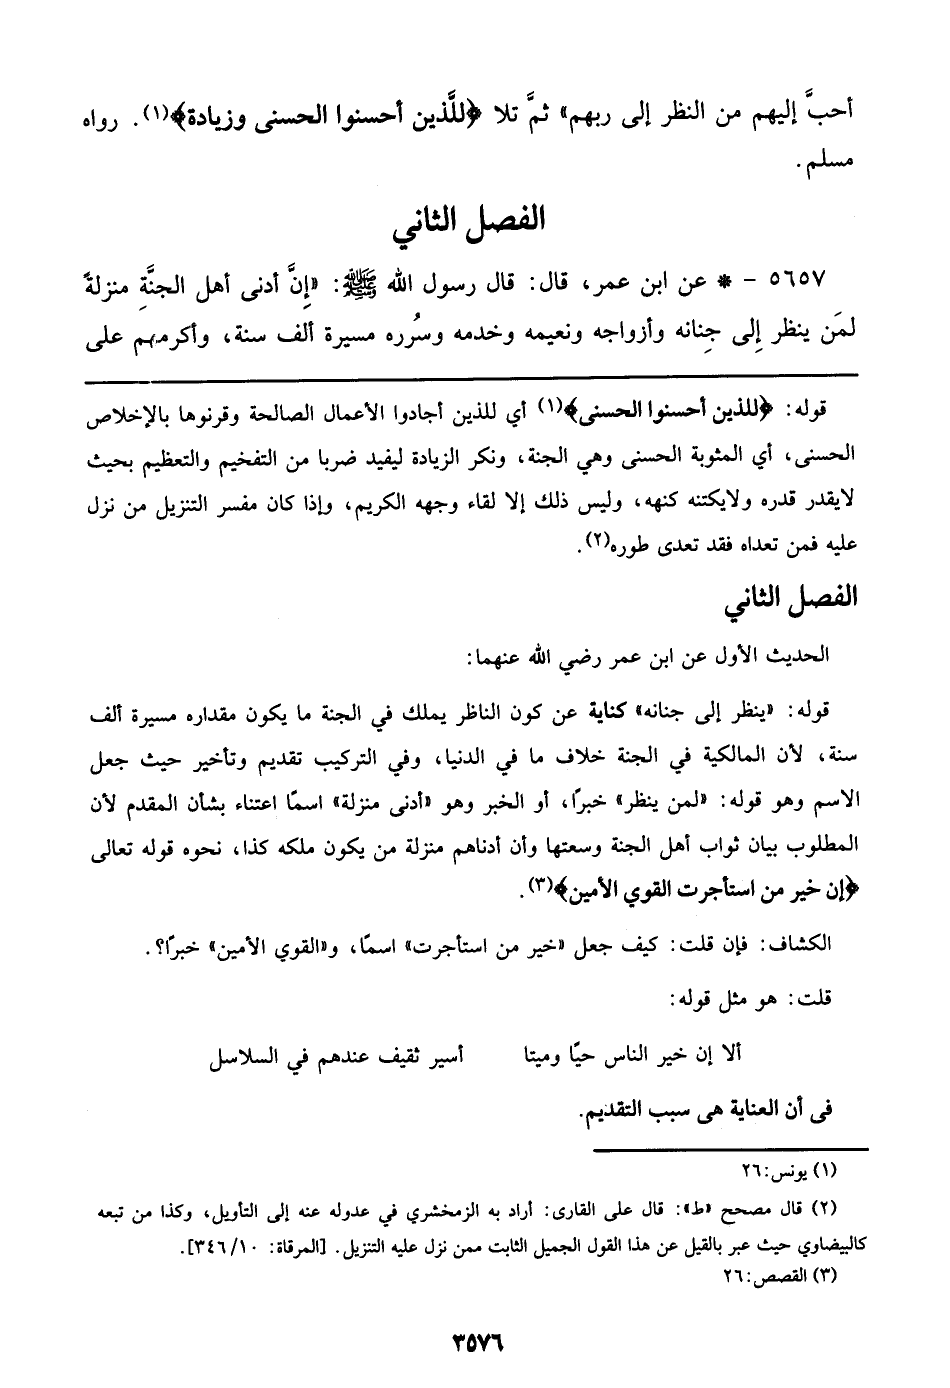 أحبَّ إليهم من النظر إلى ربهم» ثمَّ تلا ﴿للَّذين أحسنوا الحسنى وزيادة﴾(١). رواه
مسلم.
الفصل الثاني
٥٦٥٧ – * عن ابن عمر، قال: قال رسول الله ﷺ: «إِنَّ أدنى أهل الجنَّةِ منزلةً
لمَن ينظر إِلى جِنانه وأزواجه ونعيمه وخدمه وسُرره مسيرة ألف سنة، وأكرمهم على
قوله: ﴿للذين أحسنوا الحسنى﴾(١) أي للذين أجادوا الأعمال الصالحة وقرنوها بالإخلاص
الحسنى، أي المثوبة الحسنى وهي الجنة، ونكر الزيادة ليفيد ضربا من التفخيم والتعظيم بحيث
لايقدر قدره ولايكتنه كنهه، وليس ذلك إلا لقاء وجهه الكريم، وإذا كان مفسر التنزيل من نزل
عليه فمن تعداه فقد تعدى طوره(٢).
الفصل الثاني
الحديث الأول عن ابن عمر رضي الله عنهما:
قوله: «ينظر إلى جنانه» كناية عن كون الناظر يملك في الجنة ما يكون مقداره مسيرة ألف
سنة، لأن المالكية في الجنة خلاف ما في الدنيا، وفي التركيب تقديم وتأخير حيث جعل
الاسم وهو قوله: «لمن ينظر» خبرًا، أو الخبر وهو «أدنى منزلة» اسمًا اعتناء بشأن المقدم لأن
المطلوب بيان ثواب أهل الجنة وسعتها وأن أدناهم منزلة من يكون ملكه كذا، نحوه قوله تعالى
﴿إن خير من استأجرت القوي الأمين﴾(٣).
الكشاف: فإن قلت: كيف جعل «خير من استأجرت» اسمًا، و«القوي الأمين» خبرًا؟.
قلت: هو مثل قوله:
ألا إن خير الناس حيًا وميتا أسير ثقيف عندهم في السلاسل
فى أن العناية هى سبب التقديم.
(١) يونس:٢٦
(٢) قال مصحح «ط»: قال على القارى: أراد به الزمخشري في عدوله عنه إلى التأويل، وكذا من تبعه
كالبيضاوي حيث عبر بالقيل عن هذا القول الجميل الثابت ممن نزل عليه التنزيل. [المرقاة: ١٠/ ٣٤٦].
(٣) القصص:٢٦
٣٥٧٦